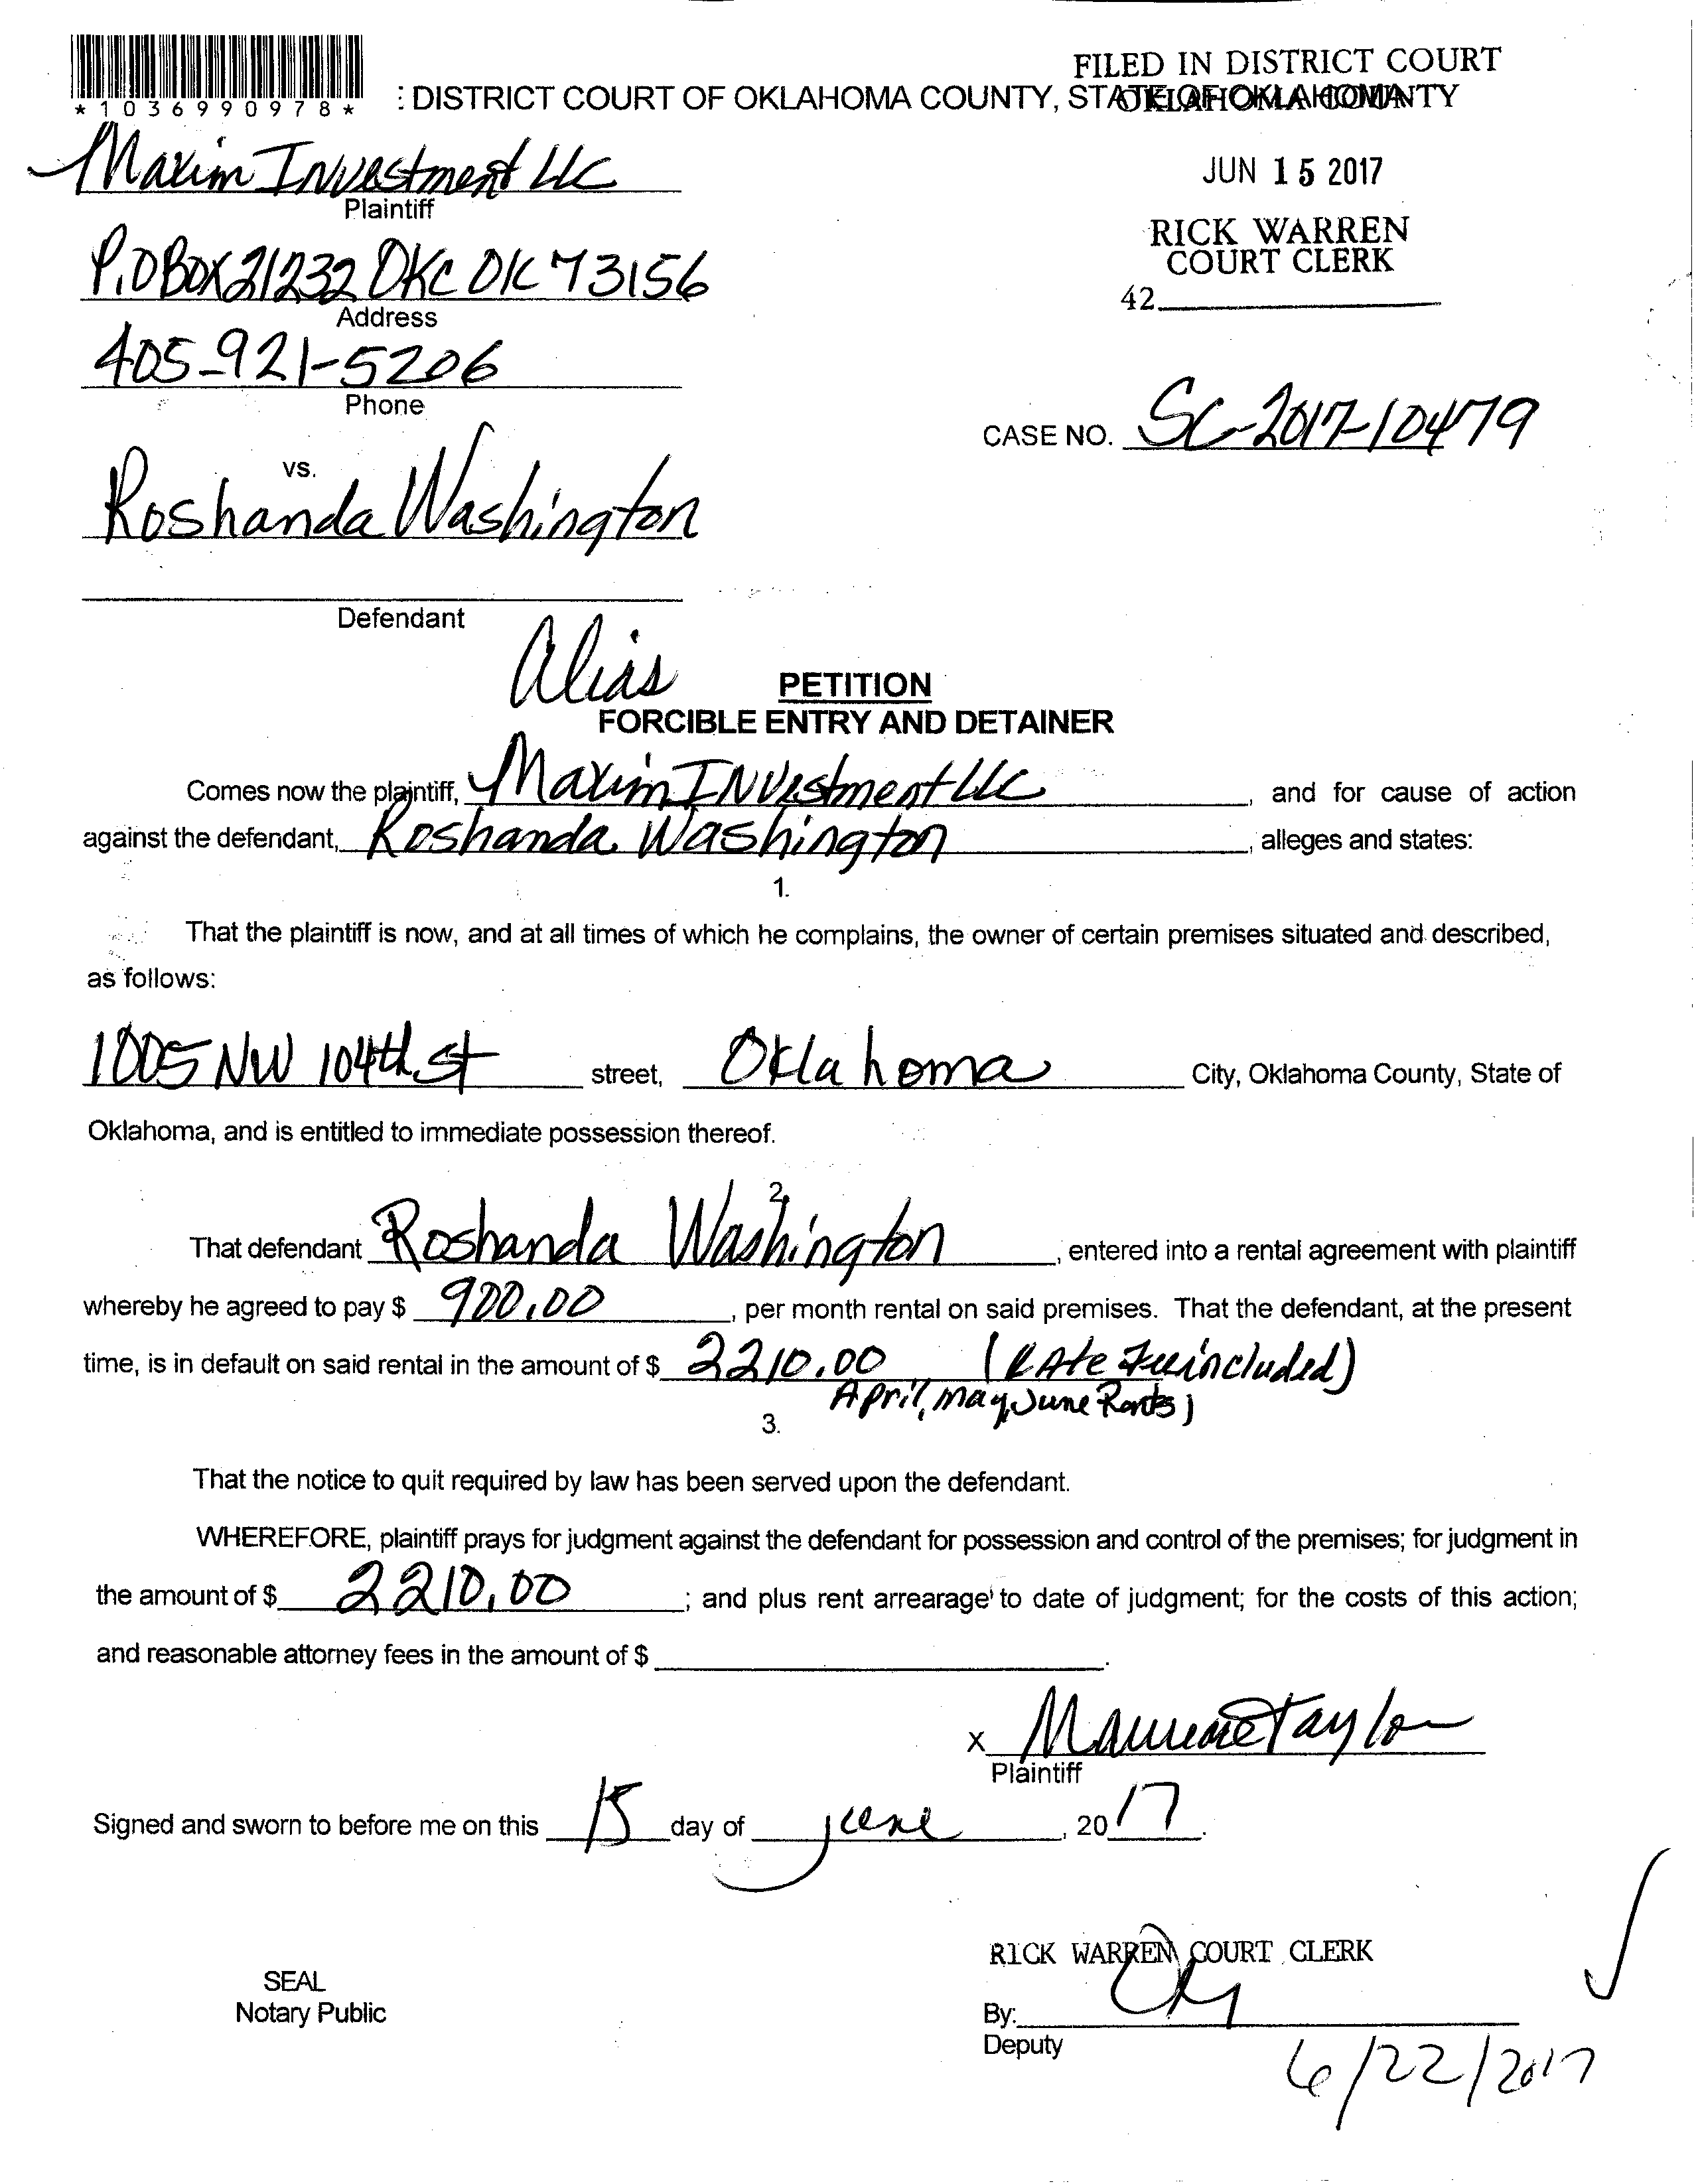 FILED IN DISTRICT COURT
OKLAHOMA COUNTY
*1036990978*
: DISTRICT COURT OF OKLAHOMA COUNTY, STATE OF OKLAHOMA
JUN 15 2017
RICK WARREN
COURT CLERK
42
Maxim Investment LLC
Plaintiff
P.O Box 21232 OKC OK 73156
Address
405-921-5206
Phone
CASE NO. SC-2017-10479
vs.
Roshanda Washington
Defendant
Alias
PETITION
FORCIBLE ENTRY AND DETAINER
Comes now the plaintiff, Maxim Investment LLC, and for cause of action
against the defendant, Roshanda Washington, alleges and states:
1.
That the plaintiff is now, and at all times of which he complains, the owner of certain premises situated and described,
as follows:
1005 NW 104th St street, Oklahoma City, Oklahoma County, State of
Oklahoma, and is entitled to immediate possession thereof.
2.
That defendant Roshanda Washington, entered into a rental agreement with plaintiff
whereby he agreed to pay $ 900.00, per month rental on said premises. That the defendant, at the present
time, is in default on said rental in the amount of $ 2210.00 (Late Fee included)
April, May, June Rents)
3.
That the notice to quit required by law has been served upon the defendant.
WHEREFORE, plaintiff prays for judgment against the defendant for possession and control of the premises; for judgment in
the amount of $ 2210.00; and plus rent arrearage to date of judgment; for the costs of this action;
and reasonable attorney fees in the amount of $
x Maurene Taylor
Plaintiff
Signed and sworn to before me on this 15 day of june, 2017.
RICK WARREN COURT CLERK
SEAL
Notary Public
By:
Deputy
6/22/2017